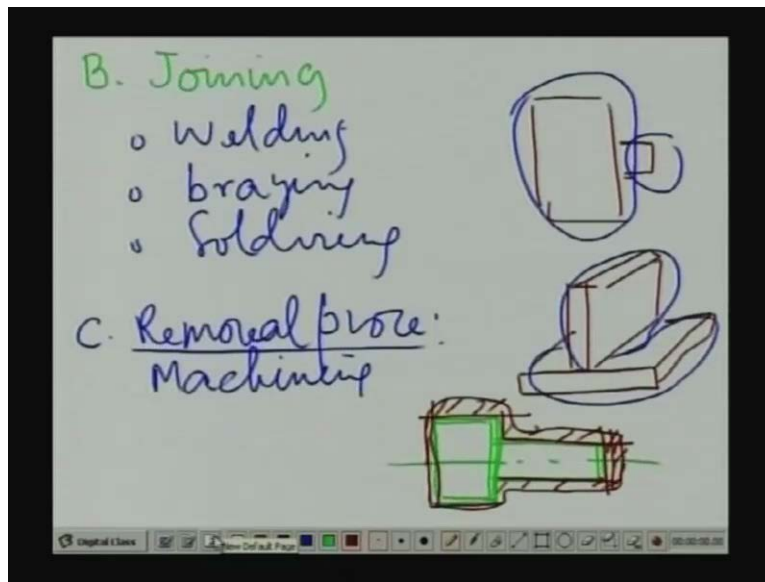 B. Joining
o Welding
o brazing
o Soldiring
C. Removal proce:
Machining
Digital Class
New Default Page
00:00:00.00